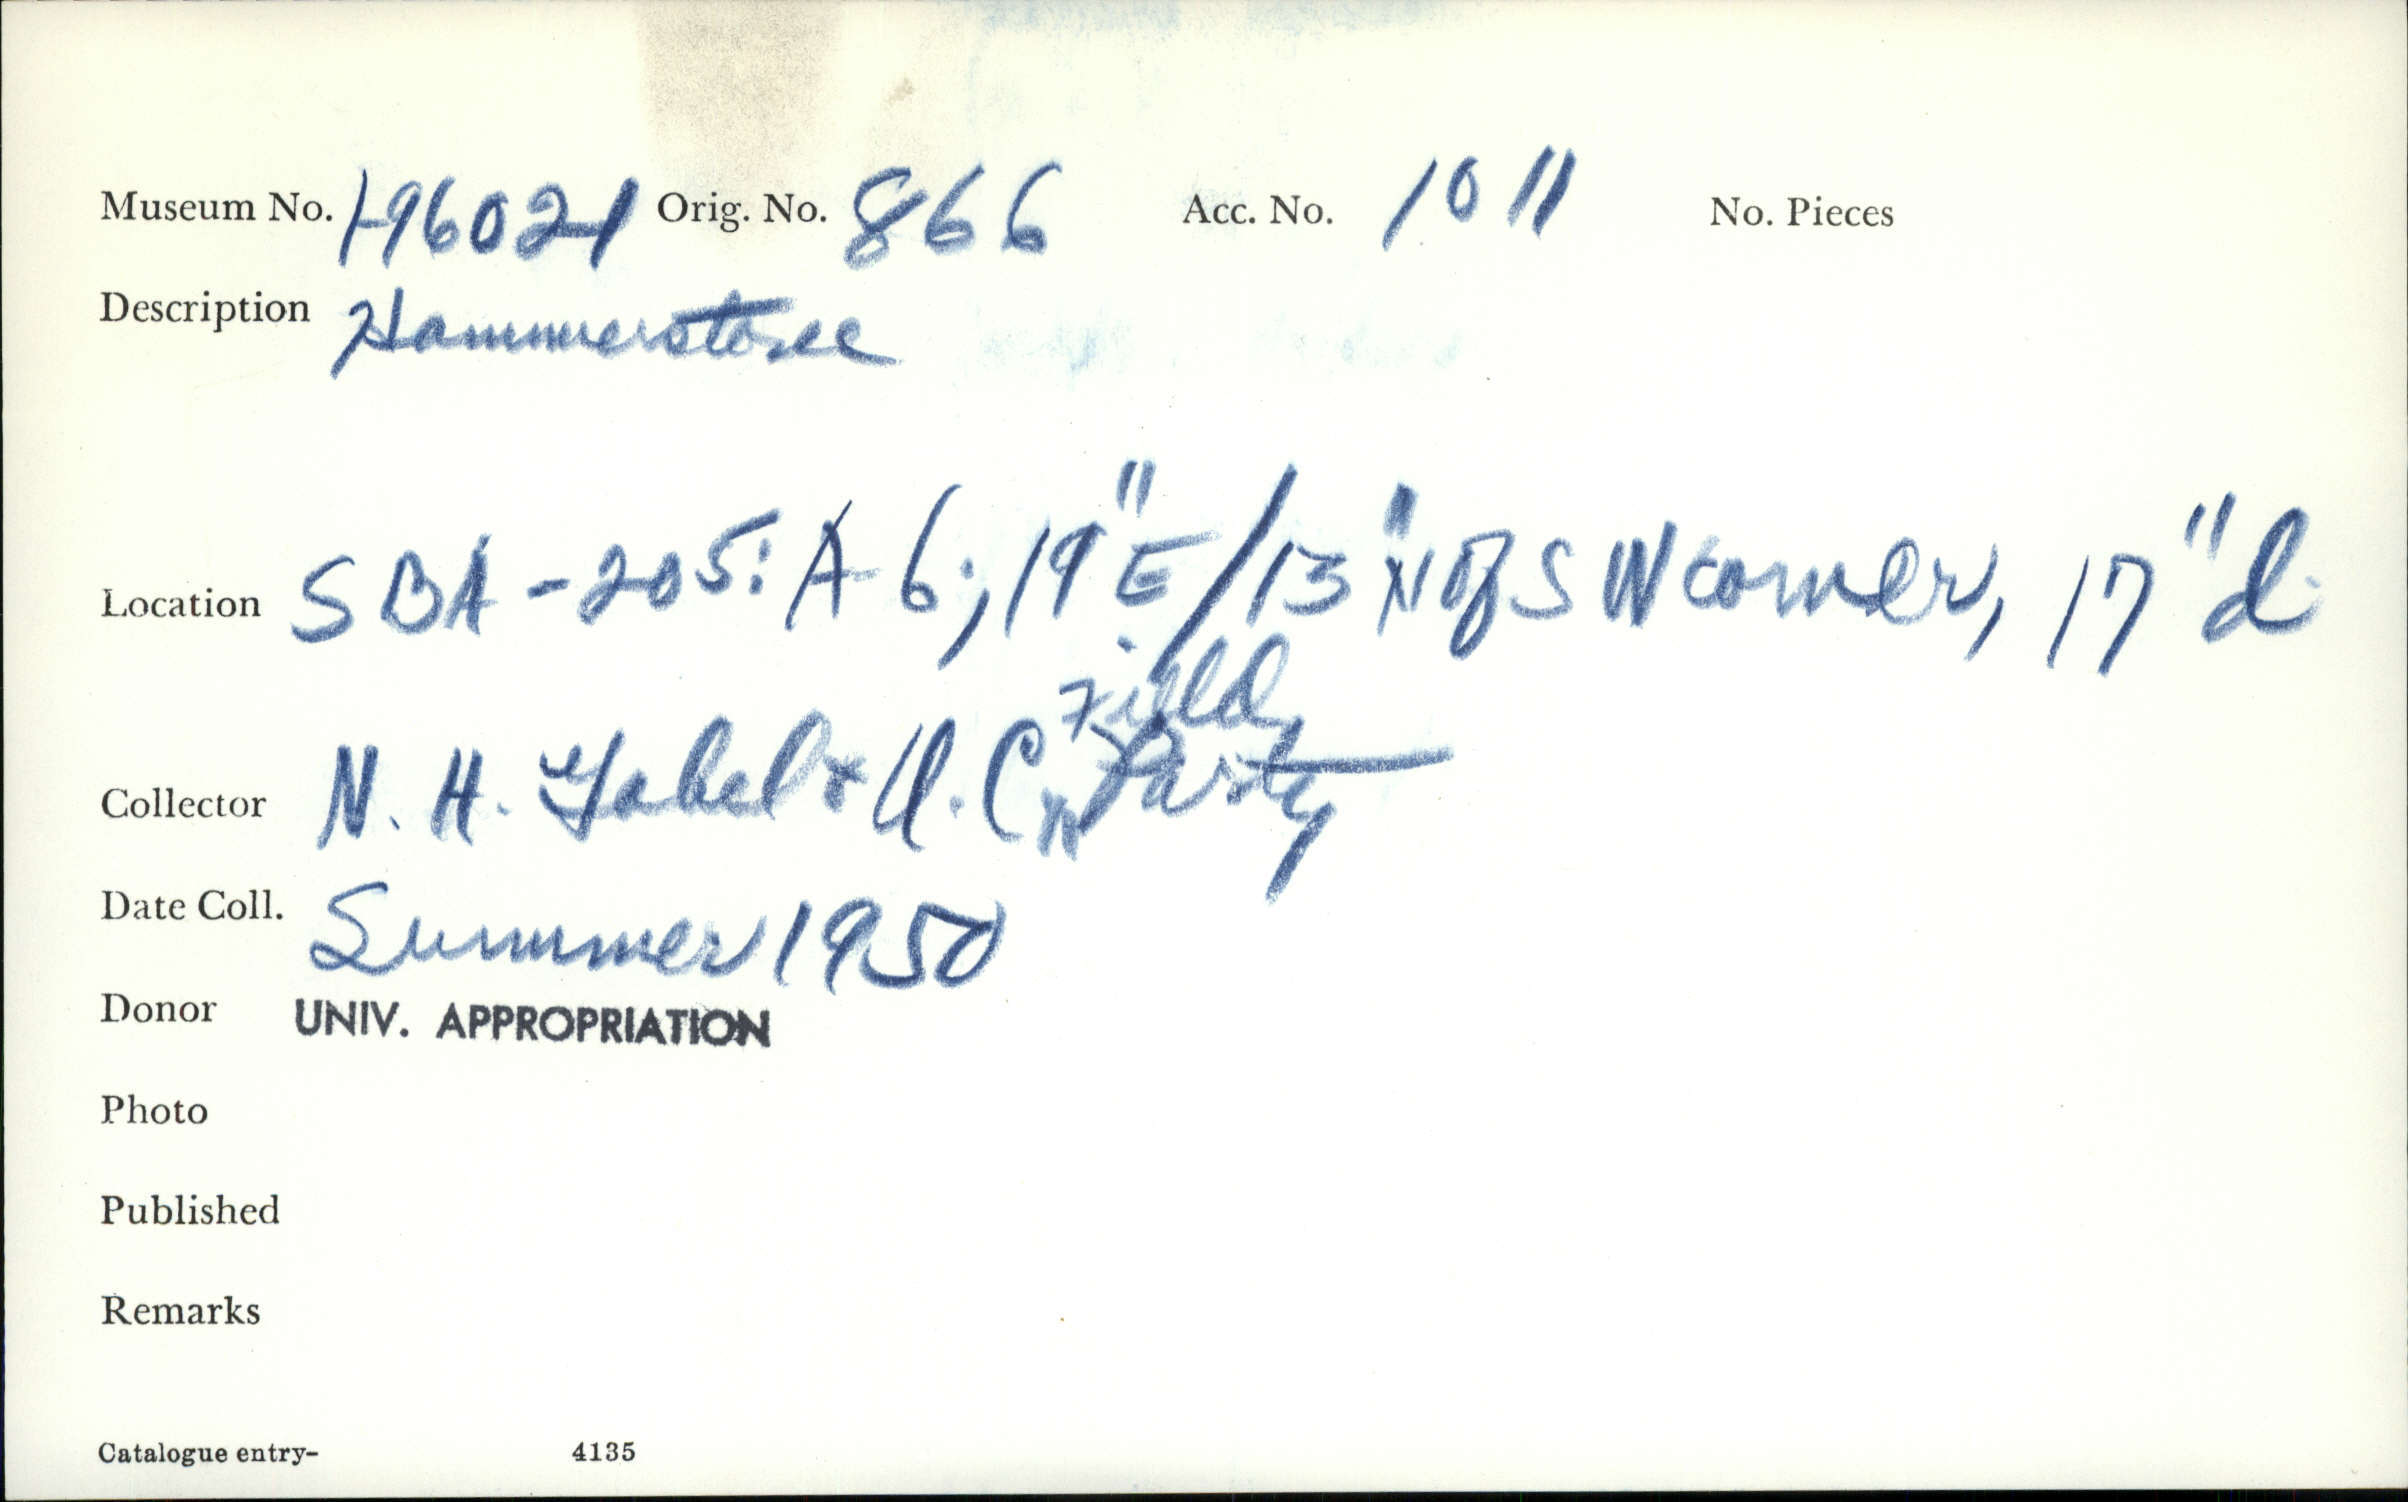 Museum No. 1-96021 Orig. No. 866 Acc. No. 1011 No. Pieces
Description Hammerstone
Location SBA-205: A-6; 19"E/13"N of SW corner, 17"d.
Collector N. H. Gabel & U.C. Field Party
Date Coll. Summer 1950
Donor UNIV. APPROPRIATION
Photo
Published
Remarks
Catalogue entry- 4135